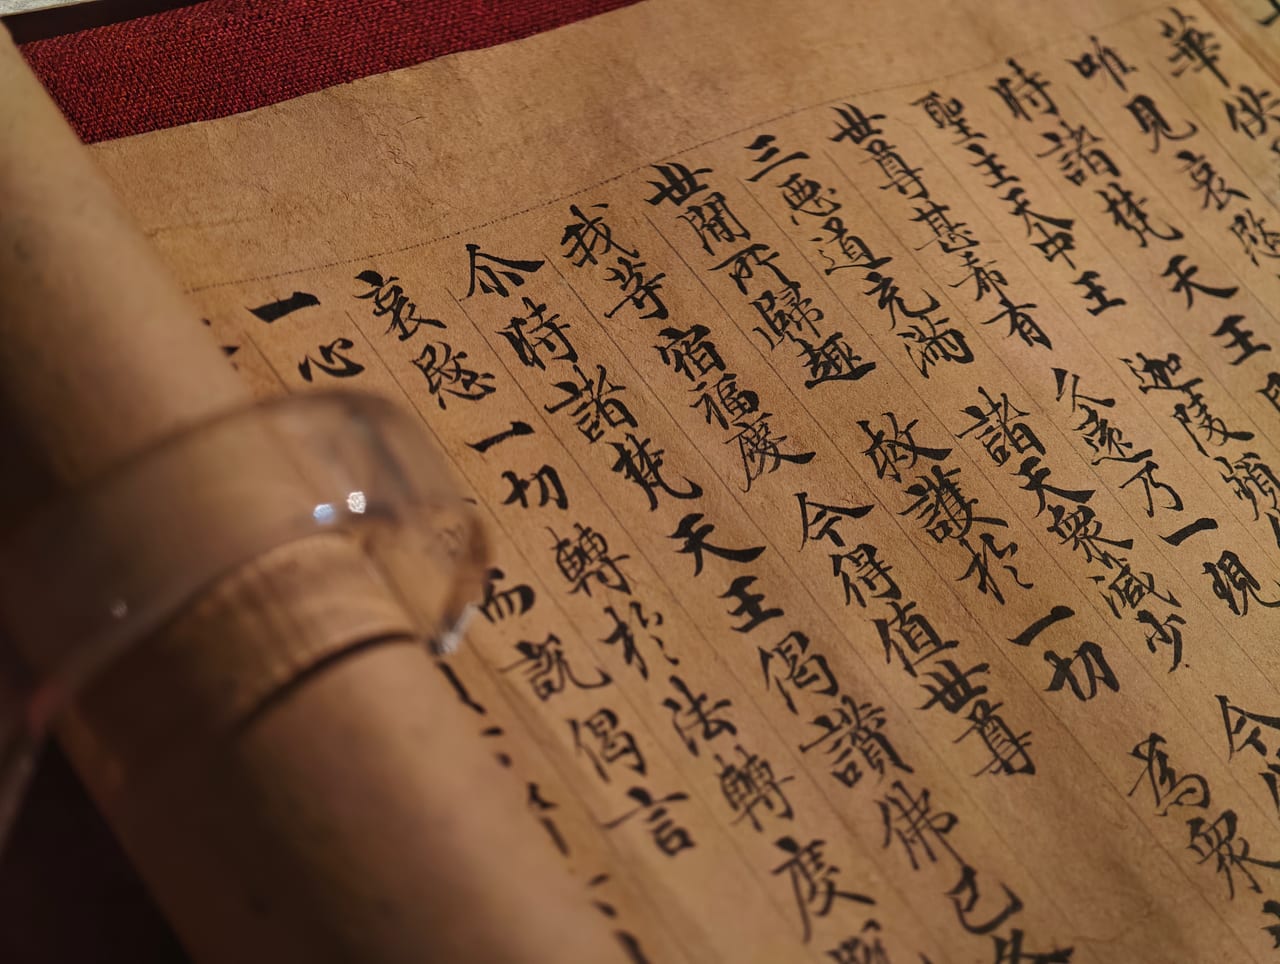 華供
唯見哀愍
時諸梵天王
聖主天中王 迦陵頻
世尊甚希有 久遠乃一現
三惡道充滿 諸天衆減少 今
世間所歸趣 救護於一切 為衆
我等宿福慶 今得值世尊
尒時諸梵天王偈讚佛已各
哀愍一切轉於法轉度
一心 而說偈言